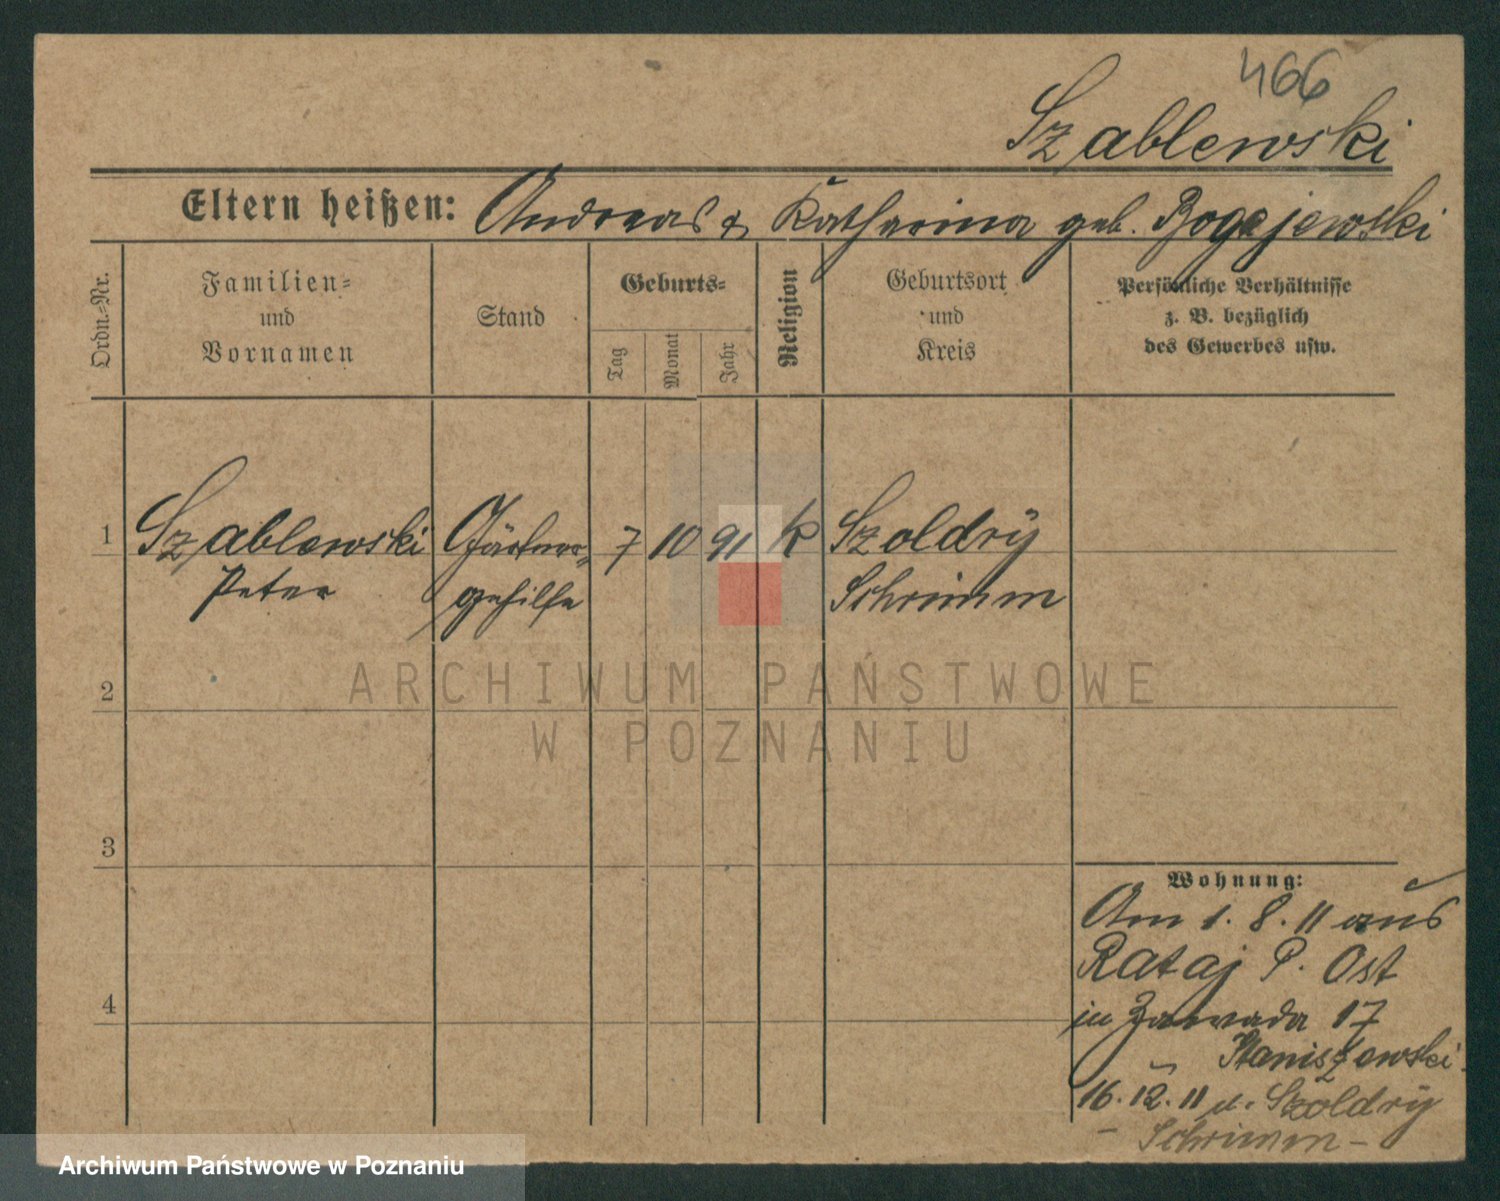 466
Szablewski
Eltern heißen: Andreas & Katharina geb. Bogajewski
Ordn.-Nr.
Familien-
und
Vornamen
Stand
Geburts-
Tag
Monat
Jahr
Religion
Geburtsort
und
Kreis
Persönliche Verhältnisse
z. B. bezüglich
des Gewerbes usw.
1 Szablewski Gärtner- 7 10 91 k Szoldry
Peter gehilfe Schrimm
2
3
4
Wohnung:
Am 1. 8. 11 aus
Rataj P. Ost
in Zawada 17
Staniszewski
16. 12. 11 n. Szoldry
Schrimm
ARCHIWUM PAŃSTWOWE
W POZNANIU
Archiwum Państwowe w Poznaniu